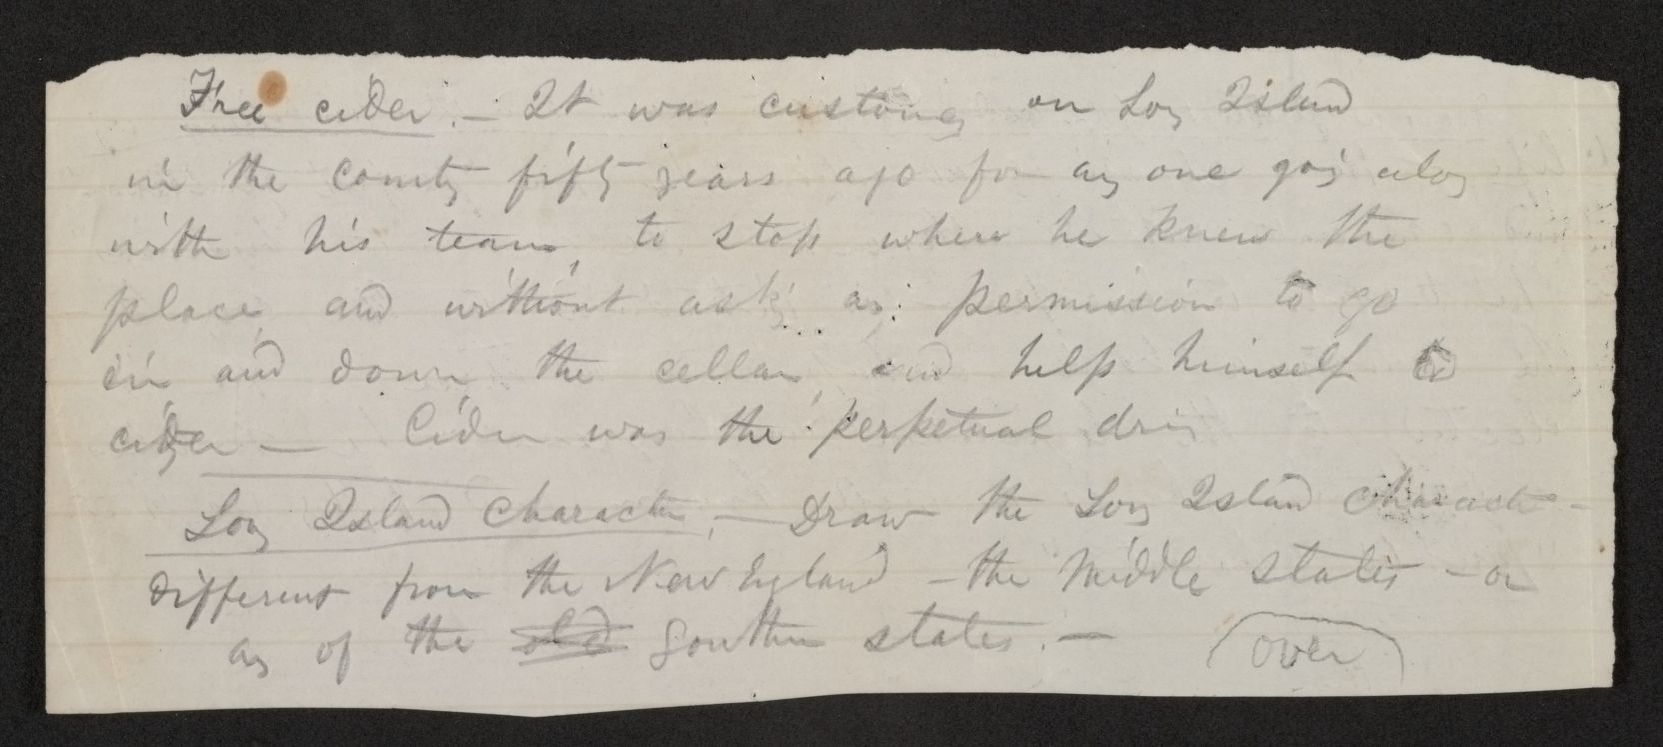 Free cider. — It was customary on Long Island
in the country fifty years ago for any one going along
with his team, to stop where he knew the
place, and without asking any permission to go
in and down the cellar, and help himself to
cider — Cider was the perpetual drink
Long Island character, — Draw the Long Island character —
different from the New England — the Middle states — or
any of the old Southern states. — (over